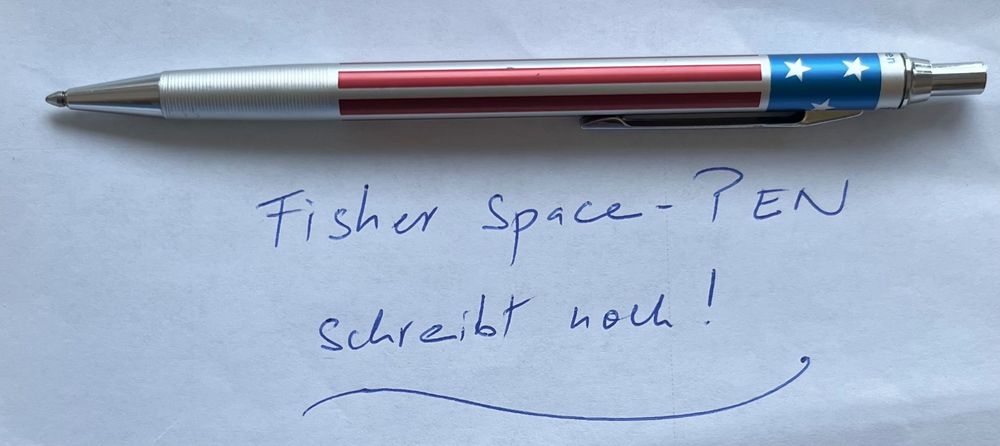 Fisher Space-PEN
schreibt noch!